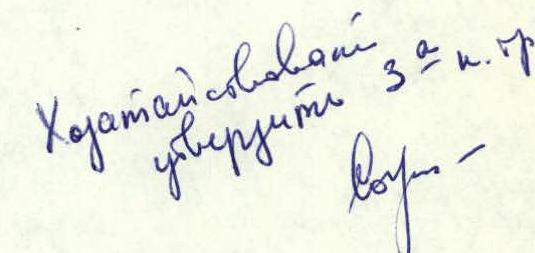 Ходатайствования
утвердить 3а н. пр